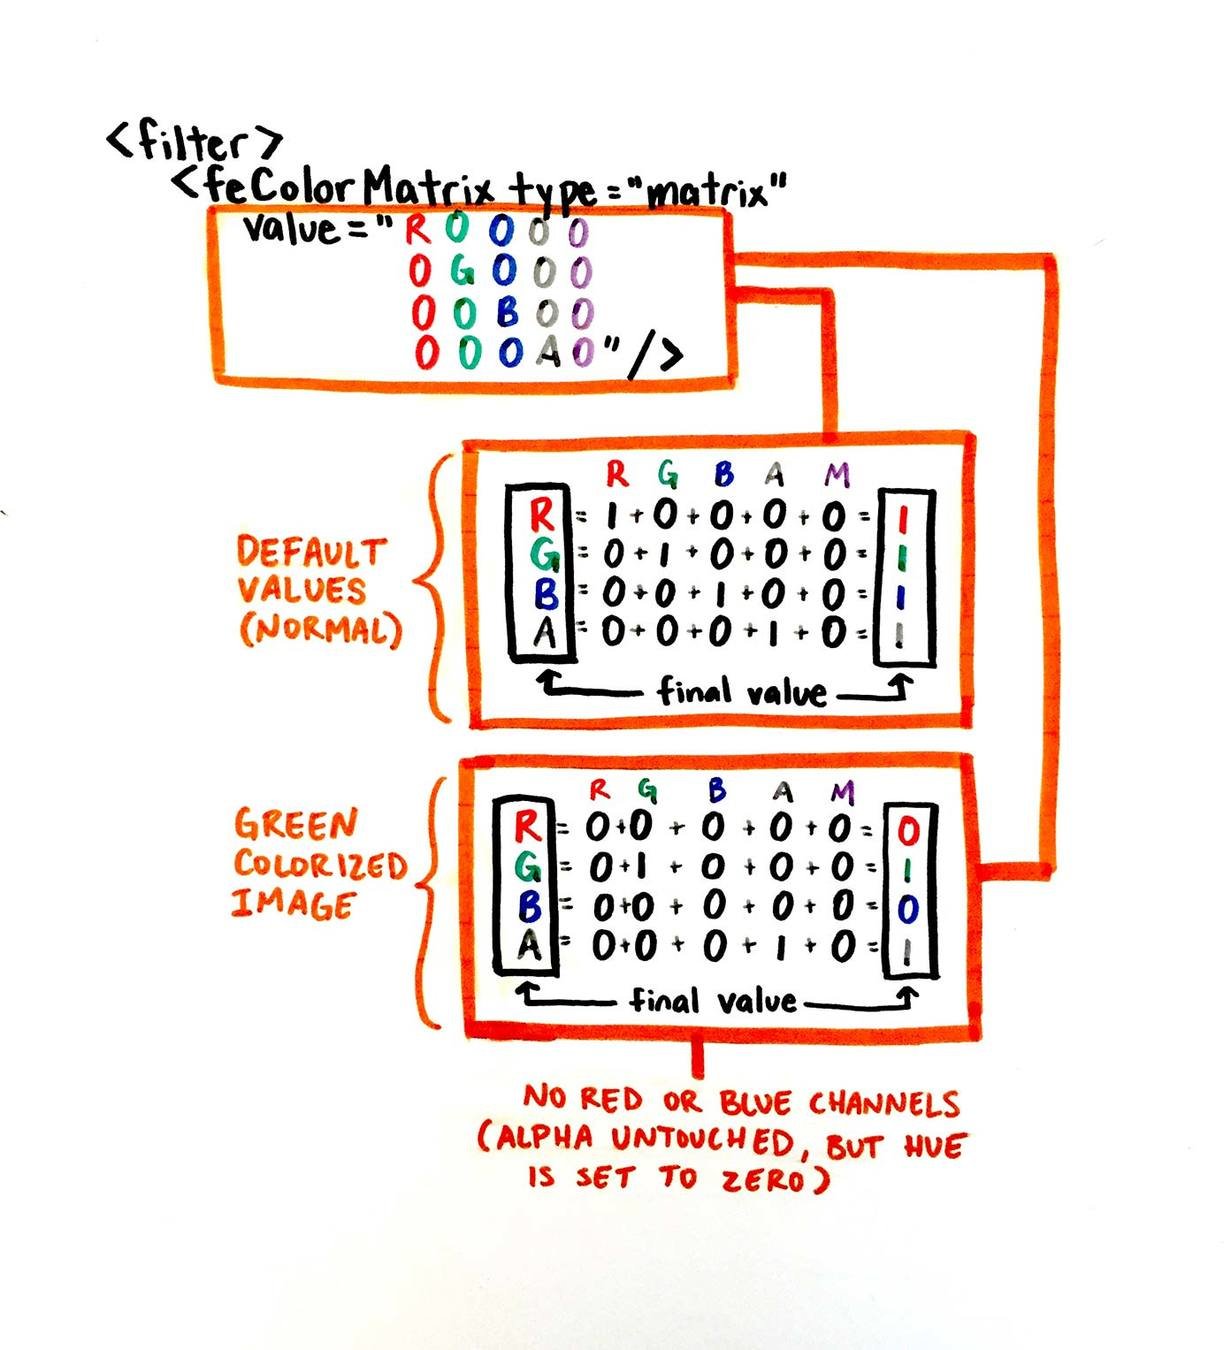 <filter>
<feColorMatrix type="matrix"
value="R 0 0 0 0
0 G 0 0 0
0 0 B 0 0
0 0 0 A 0"/>
R G B A M
R = 1 + 0 + 0 + 0 + 0 = 1
G = 0 + 1 + 0 + 0 + 0 = 1
B = 0 + 0 + 1 + 0 + 0 = 1
A = 0 + 0 + 0 + 1 + 0 = 1
final value
DEFAULT
VALUES
(NORMAL)
R G B A M
R = 0 + 0 + 0 + 0 + 0 = 0
G = 0 + 1 + 0 + 0 + 0 = 1
B = 0 + 0 + 0 + 0 + 0 = 0
A = 0 + 0 + 0 + 1 + 0 = 1
final value
GREEN
COLORIZED
IMAGE
NO RED OR BLUE CHANNELS
(ALPHA UNTOUCHED, BUT HUE
IS SET TO ZERO)